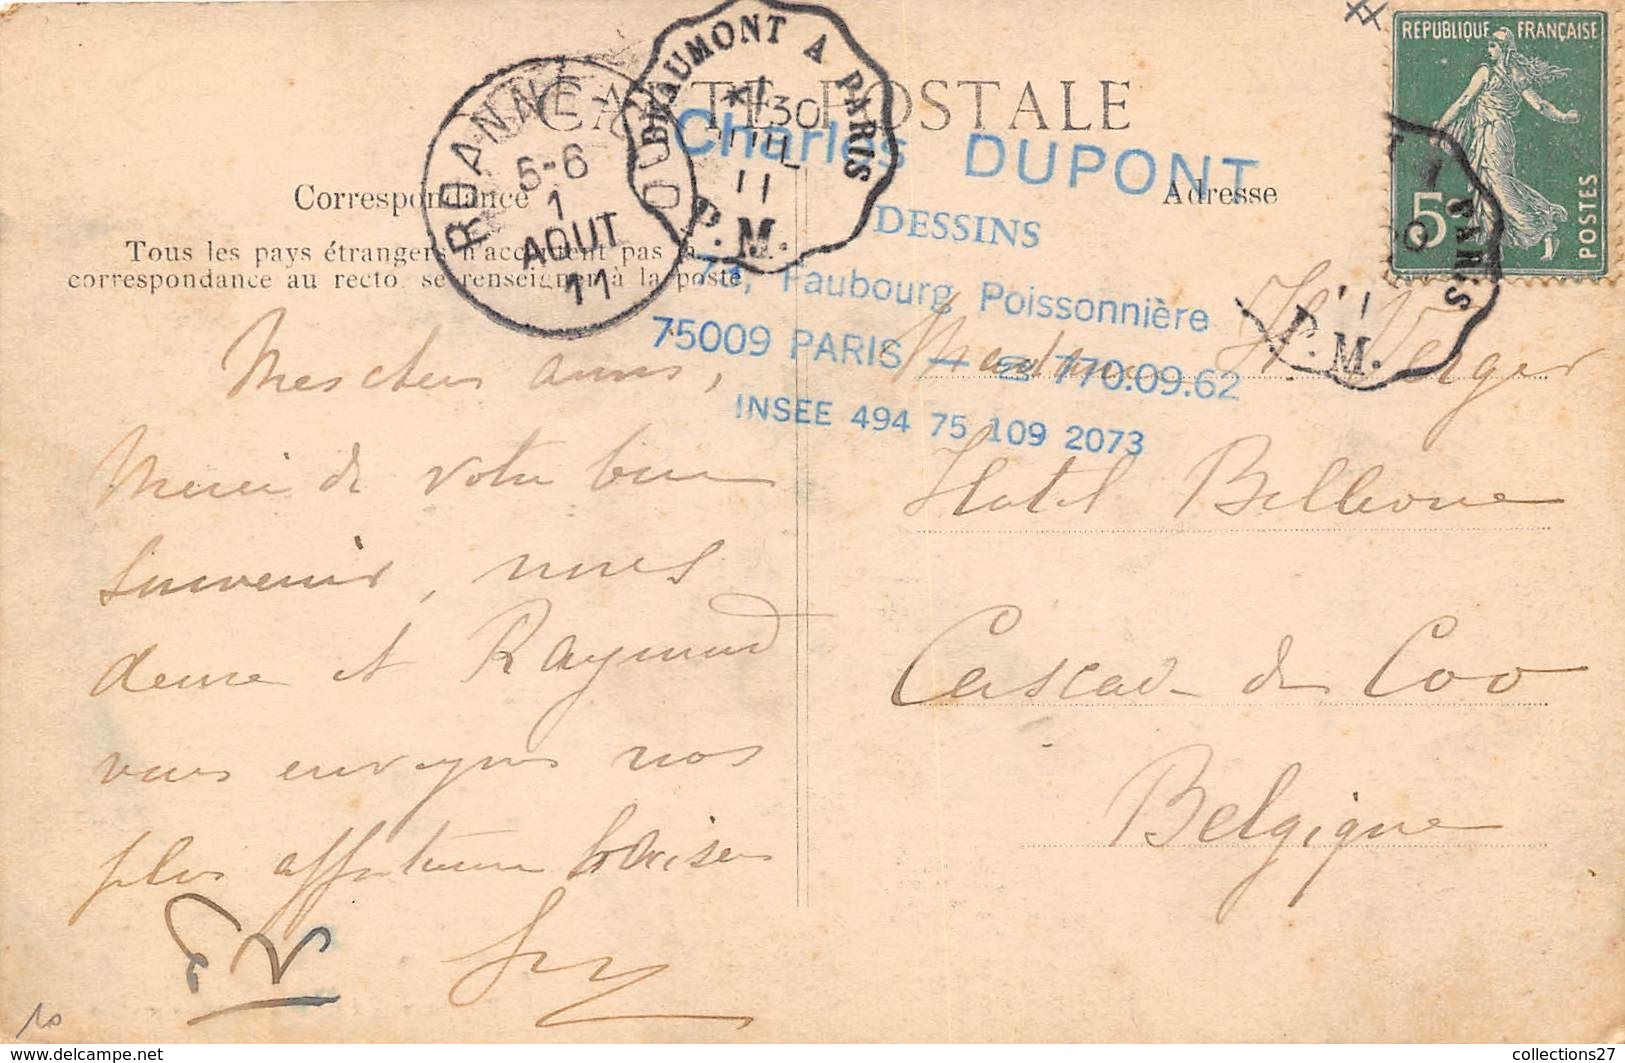 CARTE POSTALE
RÉPUBLIQUE FRANÇAISE
5c
POSTES
BEAUMONT A PARIS
30
JUIL
11
P.M.
ROANNE
5-6
1
AOUT
11
PARIS
11
P.M.
Charles DUPONT
DESSINS
73, Faubourg Poissonnière
75009 PARIS — ☎ 770.09.62
INSEE 494 75 109 2073
Correspondance
Tous les pays étrangers n'acceptent pas la
correspondance au recto, se renseigner à la poste
Mes chers amis,
Merci de votre bon
souvenir, nous
deux et Raymond
vous envoyons nos
plus affectueux baisers
Adresse
Madame H. Verger
Hotel Bellevue
Cascade de Coo
Belgique
10
www.delcampe.net
collections27